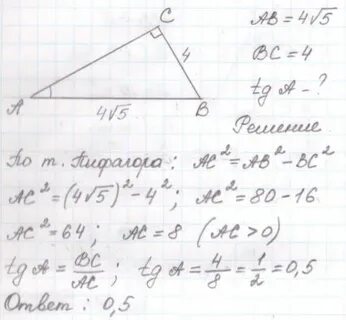 C
4
A
4√5
B
AB = 4√5
BC = 4
tg A - ?
Решение
По т. Пифагора: AC² = AB² - BC²
AC² = (4√5)² - 4²; AC² = 80 - 16
AC² = 64; AC = 8 (AC > 0)
tg A = BC/AC; tg A = 4/8 = 1/2 = 0,5
Ответ: 0,5